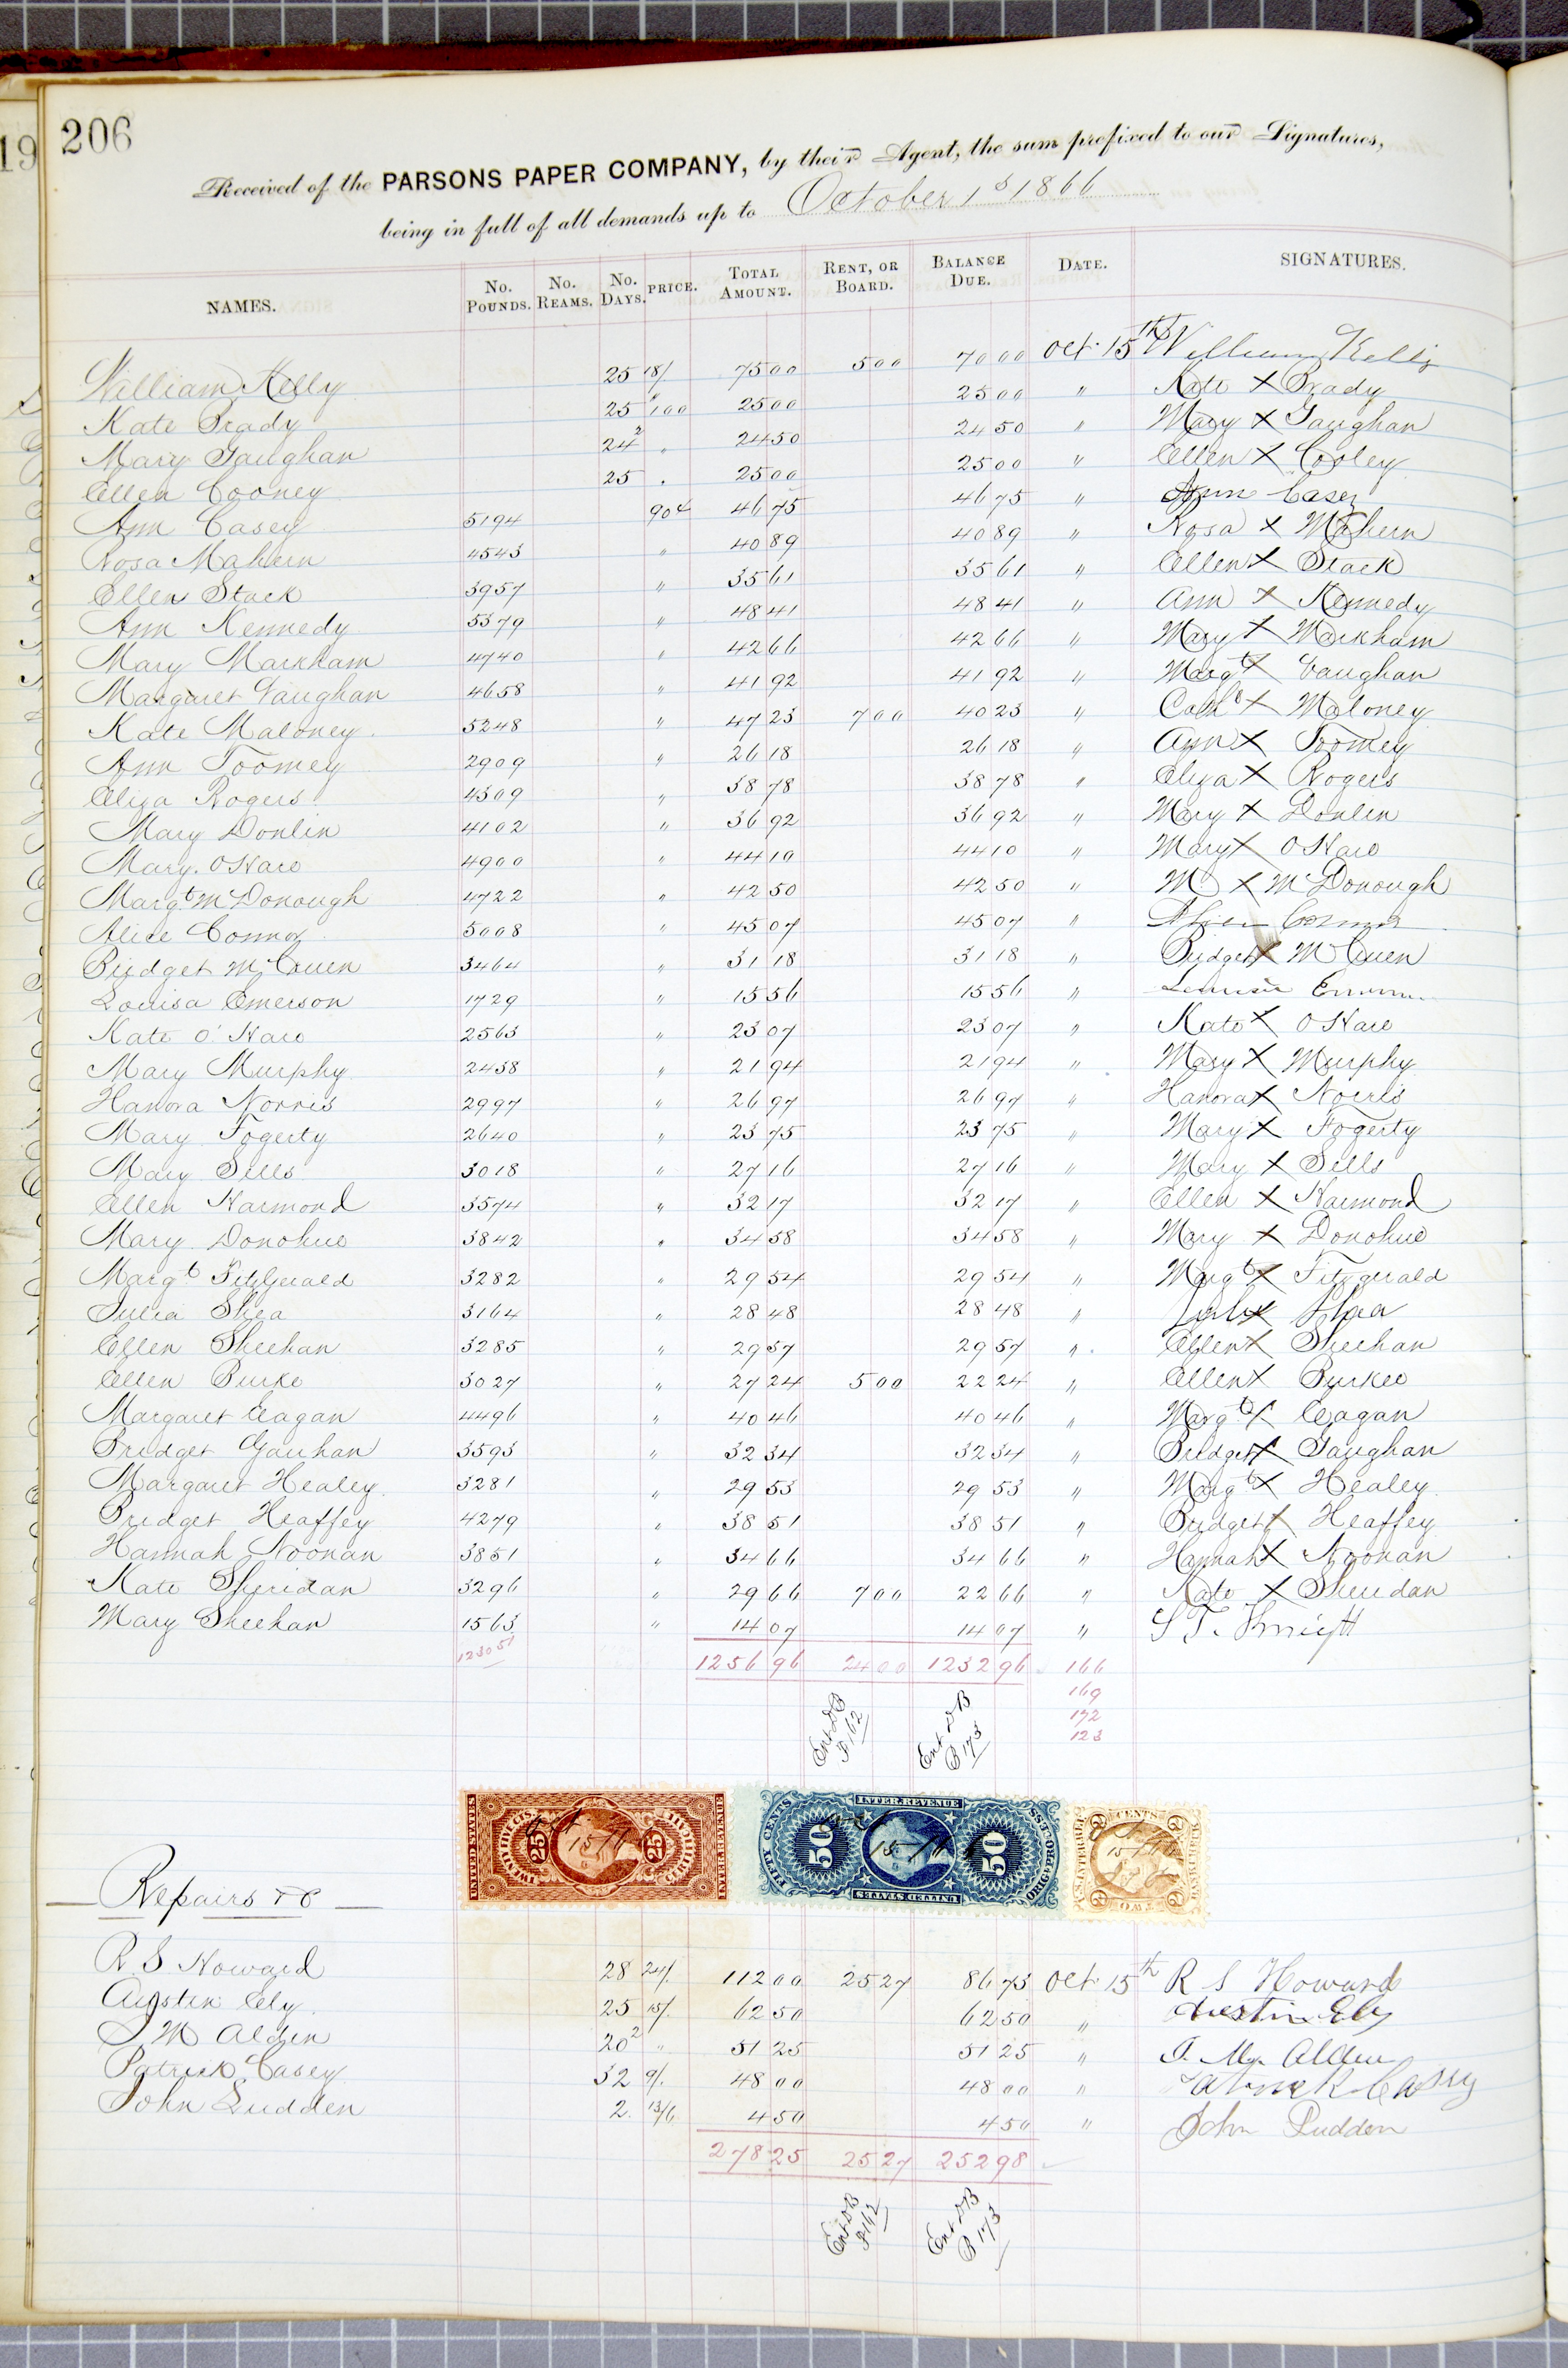 206
Received of the PARSONS PAPER COMPANY, by their Agent, the sum prefixed to our Signatures,
being in full of all demands up to October 1st 1866
NAMES. No. POUNDS. No. REAMS. No. DAYS. PRICE. TOTAL AMOUNT. RENT, OR BOARD. BALANCE DUE. DATE. SIGNATURES.
William Kelly 25 18/ 75 00 5 00 70 00 Oct. 15th William Kelly
Kate Brady 25 1 00 25 00 25 00 " Kate X Brady
Mary Gaughan 24 2 " 24 50 24 50 " Mary X Gaughan
Ellen Cooney 25 " 25 00 25 00 " Ellen X Cooley
Ann Casey 5194 90¢ 46 75 46 75 " Ann Casey
Rosa Mahern 4543 " 40 89 40 89 " Rosa X Mahern
Ellen Stack 3957 " 35 61 35 61 " Ellen X Stack
Ann Kennedy 5379 " 48 41 48 41 " Ann X Kennedy
Mary Markham 4740 " 42 66 42 66 " Mary X Markham
Margaret Vaughan 4658 " 41 92 41 92 " Margt X Vaughan
Kate Maloney 5248 " 47 23 7 00 40 23 " Cath X Maloney
Ann Toomey 2909 " 26 18 26 18 " Ann X Toomey
Eliza Rogers 4309 " 38 78 38 78 " Eliza X Rogers
Mary Donlin 4102 " 36 92 36 92 " Mary X Donlin
Mary O'Hare 4900 " 44 10 44 10 " Mary X O'Hare
Margt McDonough 4722 " 42 50 42 50 " M X McDonough
Alice Connor 5008 " 45 07 45 07 " Alice Connor
Bridget McCuen 3464 " 31 18 31 18 " Bridget X McCuen
Louisa Emerson 1729 " 15 56 15 56 " Louisa Emerson
Kate O'Hare 2563 " 23 07 23 07 " Kate X O'Hare
Mary Murphy 2438 " 21 94 21 94 " Mary X Murphy
Hanora Norris 2997 " 26 97 26 97 " Hanora X Norris
Mary Fogerty 2640 " 23 75 23 75 " Mary X Fogerty
Mary Sills 3018 " 27 16 27 16 " Mary X Sills
Ellen Harmond 3574 " 32 17 32 17 " Ellen X Harmond
Mary Donohue 3842 " 34 58 34 58 " Mary X Donohue
Margt FitzGerald 3282 " 29 54 29 54 " Margt X Fitzgerald
Julia Shea 3164 " 28 48 28 48 " Julia X Shea
Ellen Sheehan 3285 " 29 57 29 57 " Ellen X Sheehan
Ellen Burke 3027 " 27 24 5 00 22 24 " Ellen X Burke
Margaret Eagan 4496 " 40 46 40 46 " Margt X Eagan
Bridget Gauhan 3593 " 32 34 32 34 " Bridget X Gaughan
Margaret Healey 3281 " 29 53 29 53 " Margt X Healey
Bridget Heaffey 4279 " 38 51 38 51 " Bridget X Heaffey
Hannah Noonan 3851 " 34 66 34 66 " Hannah X Noonan
Kate Sheridan 3296 " 29 66 7 00 22 66 " Kate X Sheridan
Mary Sheehan 1563 " 14 07 14 07 " S T. Knight
123051 1256 96 24 00 1232 96 166
169
172
123
Ent DB P 162
Ent DB P 173
UNITED STATES INTER. REVENUE TWENTY FIVE CTS. 25 25 CERTIFICATE
INTER. REVENUE FIFTY CENTS 50 50 UNITED STATES ORIG'L PROCESS
U.S. INTER. REV. 2 CENTS 2 TWO BANK CHECK
Oct 15/66
Repairs &c
R. S. Howard 28 24/ 112 00 25 27 86 73 Oct. 15th R S Howard
Austin Ely 25 15/ 62 50 62 50 " Austin Ely
J M Alden 20 2 " 51 25 51 25 " J. M. Alden
Patrick Casey 32 9/ 48 00 48 00 " Patrick Casey
John Ludden 2 13/6 4 50 4 50 " John Ludden
278 25 25 27 252 98
Ent DB P 162
Ent DB P 173